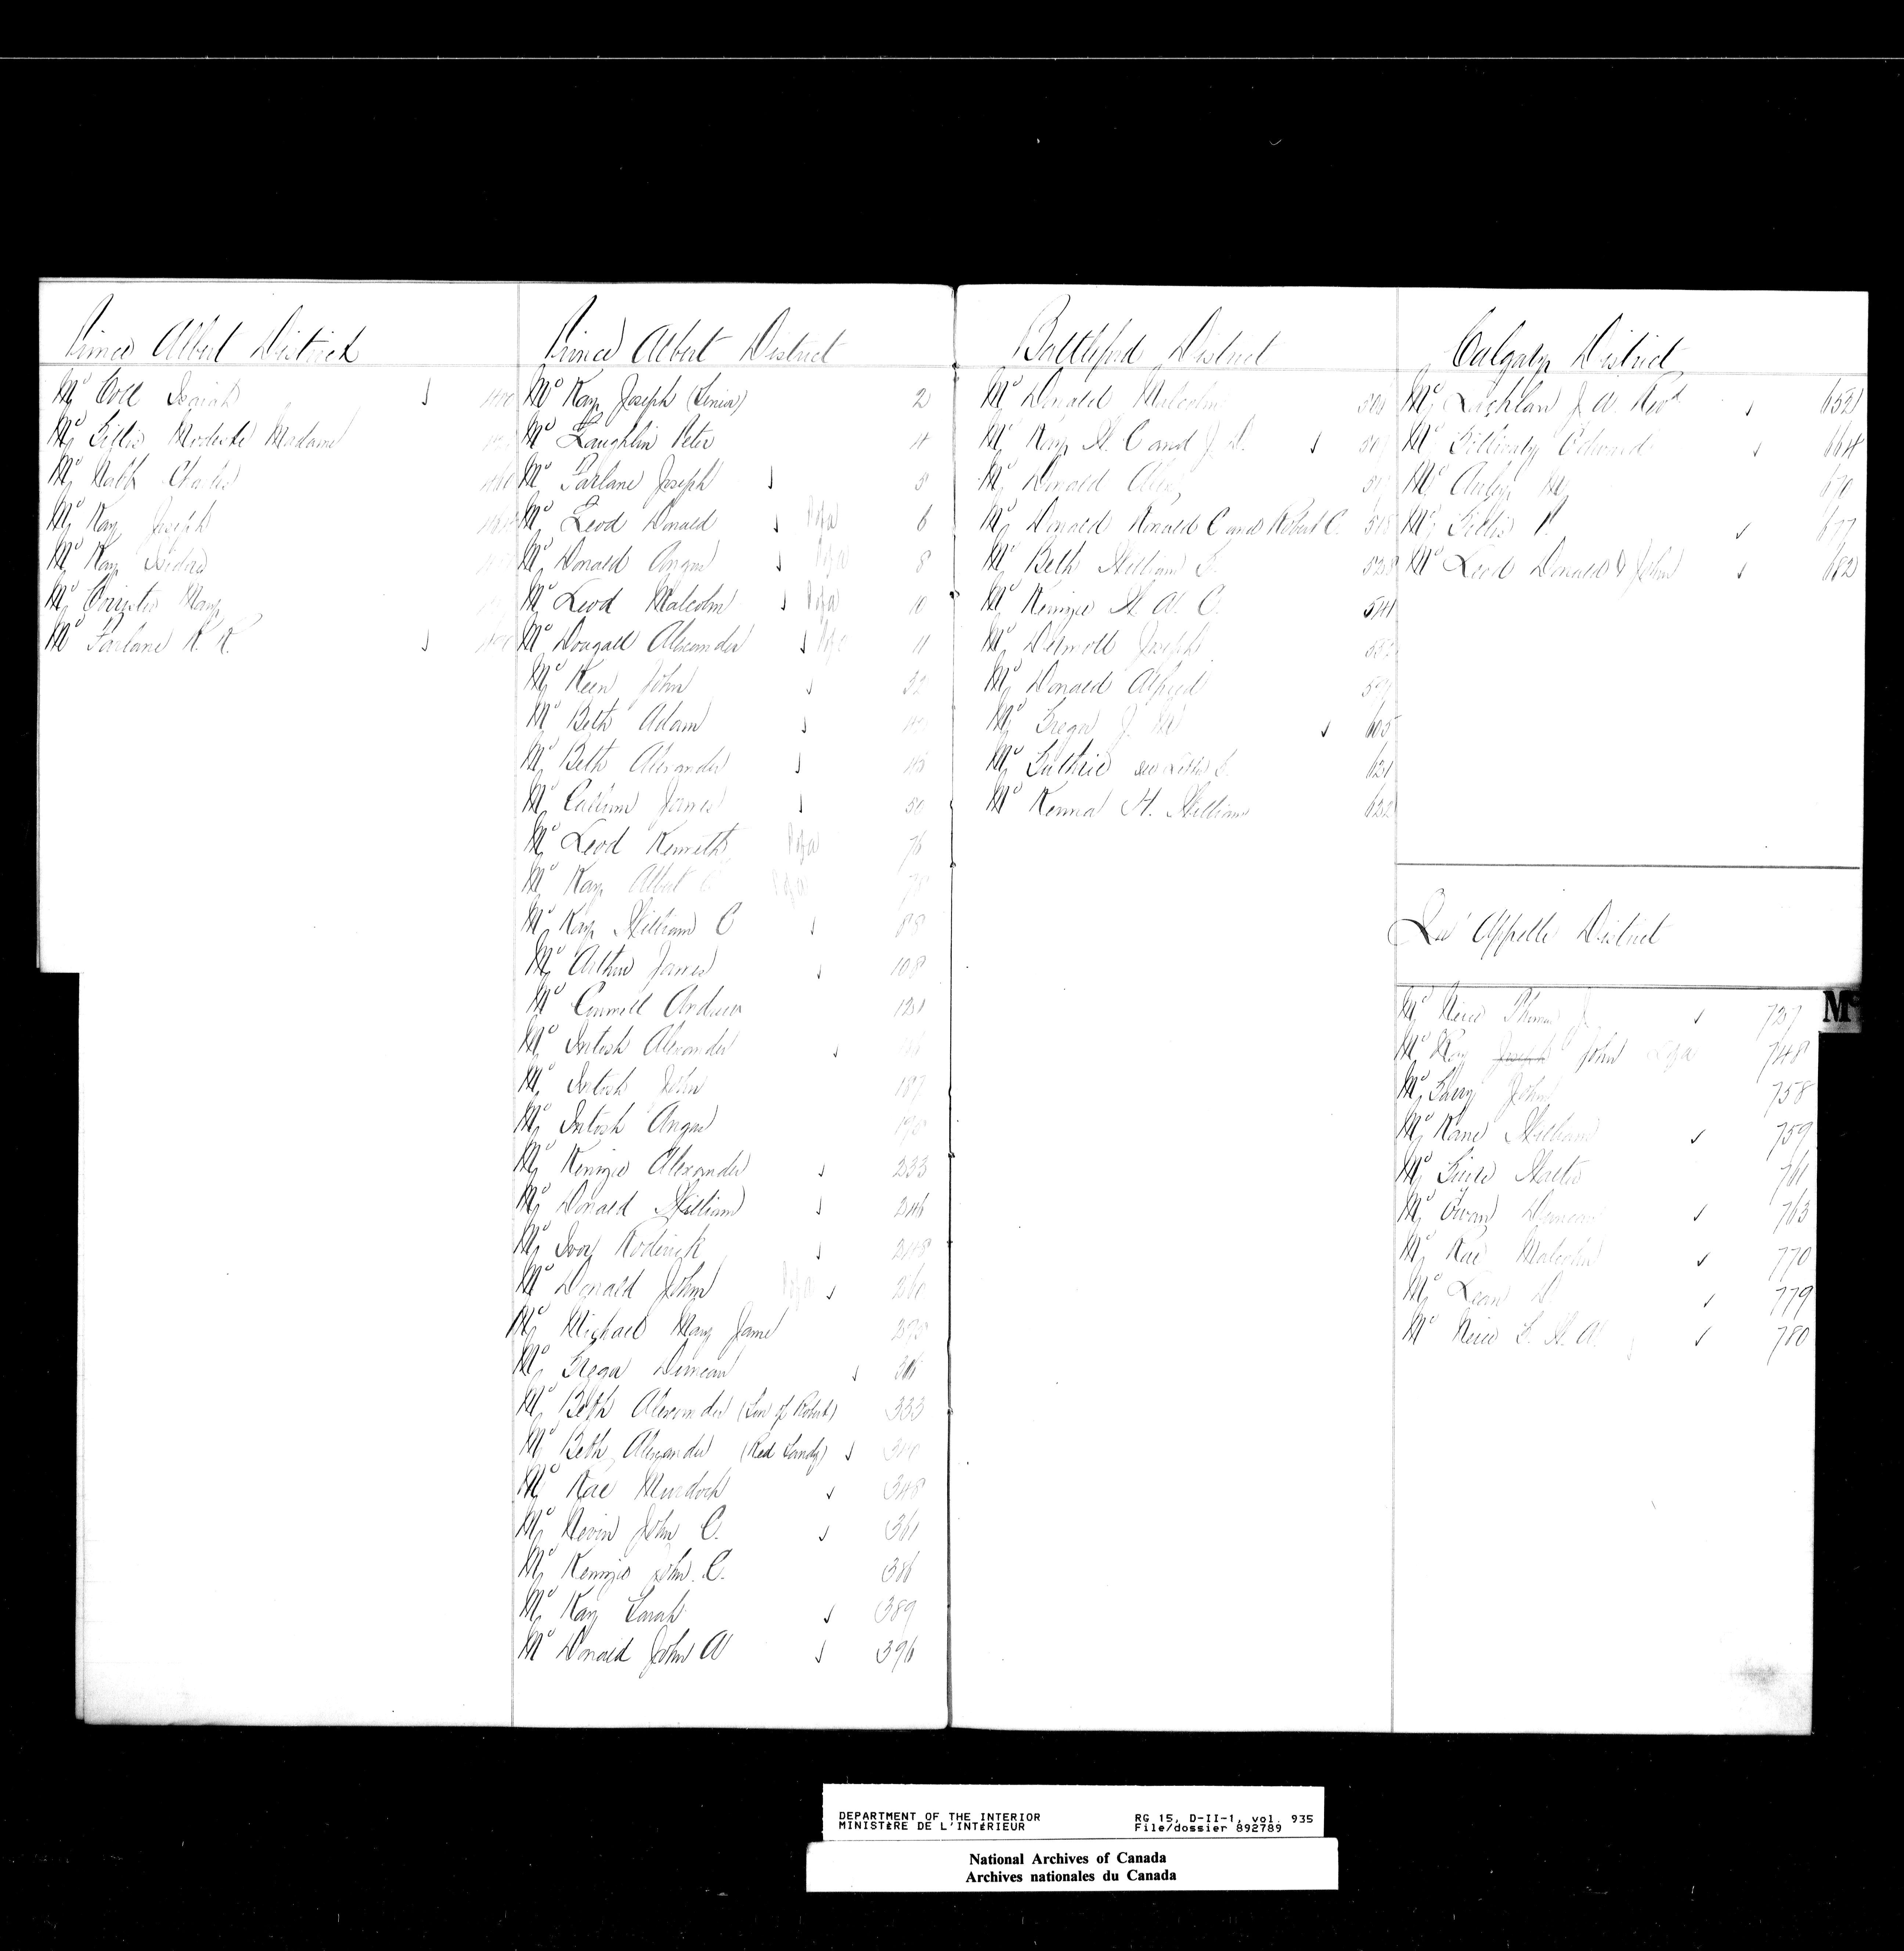 Prince Albert District
Mc Coll Isaiah ✓
Mc Gillis Modeste Madame
Mc Nabb Charles
Mc Kay Joseph
Mc Kay Isidore
Mc Corrister Mary
Mc Farlane R. K. ✓
Prince Albert District
Mc Kay Joseph (Senior) 2
Mc Laughlin Peter 4
Mc Farlane Joseph ✓ 5
Mc Leod Donald ✓ 6
Mc Donald Angus ✓ 8
Mc Leod Malcolm ✓ 10
Mc Dougall Alexander ✓ 11
Mc Keen John ✓ 32
Mc Beth Adam ✓
Mc Beth Alexander ✓ 45
Mc Callum James ✓ 50
Mc Leod Kenneth 76
Mc Kay Albert
Mc Kay William C ✓ 88
Mc Arthur James ✓ 108
Mc Connell Andrew 121
Mc Intosh Alexander ✓
Mc Intosh John 187
Mc Intosh Angus 190
Mc Kenzie Alexander ✓ 233
Mc Donald William ✓ 246
Mc Ivor Roderick ✓ 248
Mc Donald John ✓ 260
Mc Michael Mary Jane
Mc Gregor Duncan ✓
Mc Beth Alexander (Son of Robert) 333
Mc Beth Alexander (Red Sandy) ✓
Mc Rae Murdoch ✓ 348
Mc Nevin John C. ✓ 361
Mc Kenzie John C. 386
Mc Kay Sarah ✓ 389
Mc Donald John A ✓ 396
Battleford District
Mc Donald Malcolm
Mc Kay W. C and J. D. ✓
Mc Donald Alex
Mc Donald Ronald C and Robert C. 518
Mc Beth William G. 528
Mc Kenzie W. A. C. 544
Mc Dermott Joseph
Mc Donald Alfred
Mc Gregor J. W ✓ 605
Mc Guthrie 621
Mc Kenna H. William 622
Calgary District
Mc Lachlan J. A. Revd ✓ 652
Mc Gillivary Edward ✓ 664
Mc Auley 670
Mc Gillis ✓ 677
Mc Leod Donald & John ✓ 682
Qu'Appelle District
Mc Neill Thomas J ✓ 727
Mc Kay Joseph John 748
Mc Garry John 758
Mc Kane William ✓ 759
Mc Guire Walter 761
Mc Ewan Duncan ✓ 763
Mc Rae Malcolm ✓ 770
Mc Lean D ✓ 779
Mc Neill ✓ 780
Mc
DEPARTMENT OF THE INTERIOR RG 15, D-II-1, vol. 935
MINISTÈRE DE L'INTÉRIEUR File/dossier 892789
National Archives of Canada
Archives nationales du Canada